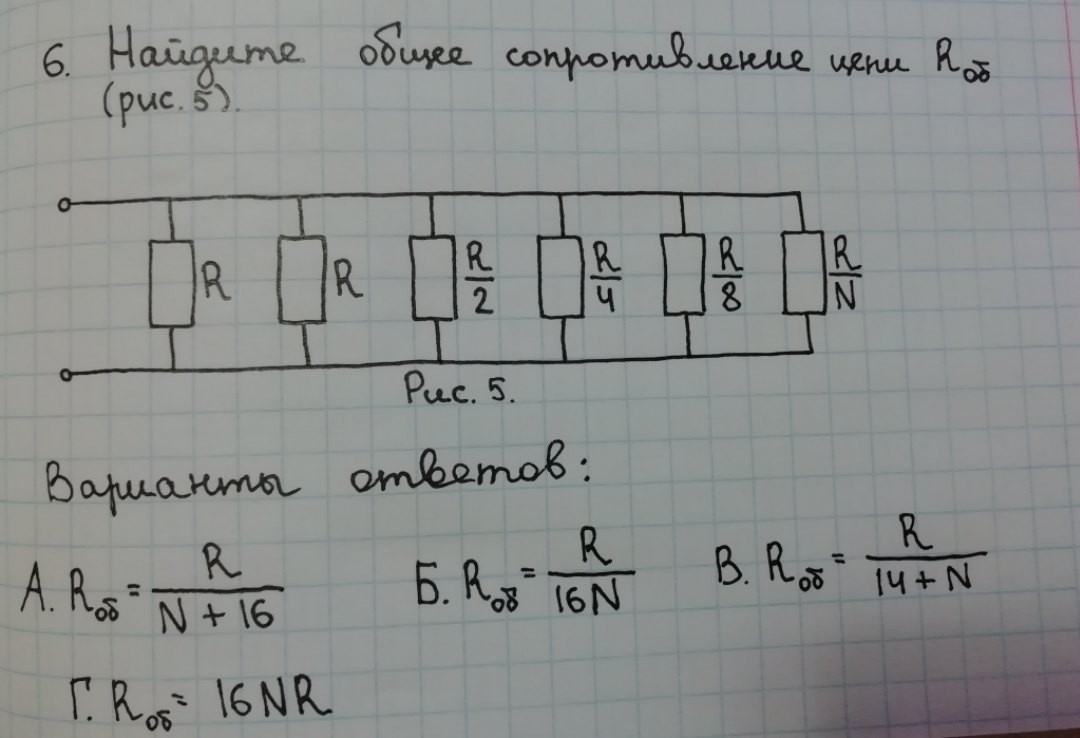 6. Найдите общее сопротивление цепи Rоб
(рис. 5).
R R R/2 R/4 R/8 R/N
Рис. 5.
Варианты ответов:
А. Rоб = R/(N + 16) Б. Rоб = R/(16N) В. Rоб = R/(14 + N)
Г. Rоб = 16NR